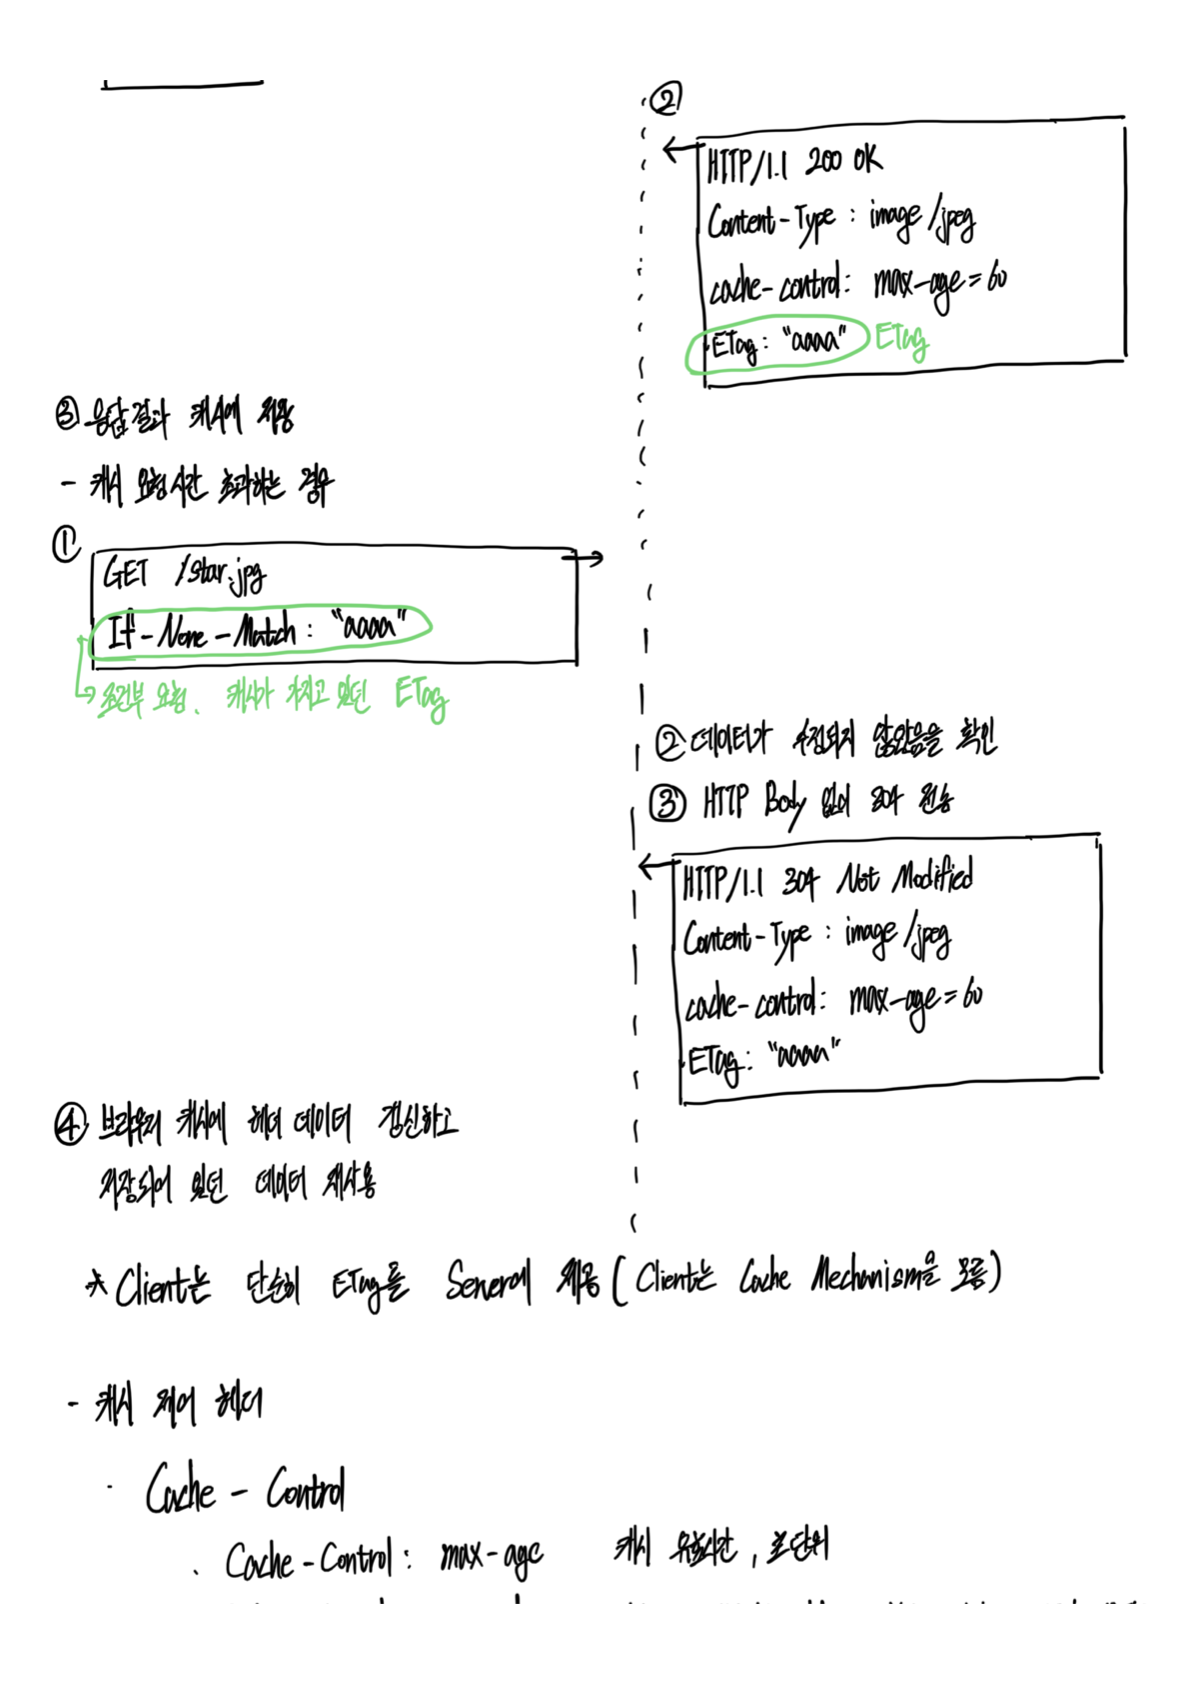 ②
HTTP/1.1 200 OK
Content-Type : image/jpeg
cache-control: max-age=60
ETag: "aaaa" ETag
③ 응답결과 캐시에 저장
- 캐시 요청시간 초과하는 경우
①
GET /star.jpg
If-None-Match : "aaaa"
조건부 요청. 캐시가 가지고 있던 ETag
② 데이터가 수정되지 않았음을 확인
③ HTTP Body 없이 304 전송
HTTP/1.1 304 Not Modified
Content-Type : image/jpeg
cache-control: max-age=60
ETag: "aaaa"
④ 브라우저 캐시에 헤더 데이터 갱신하고
저장되어 있던 데이터 재사용
* Client는 단순히 ETag를 Server에 제공 (Client는 Cache Mechanism을 모름)
- 캐시 제어 헤더
· Cache - Control
. Cache-Control: max-age 캐시 유효시간, 초단위